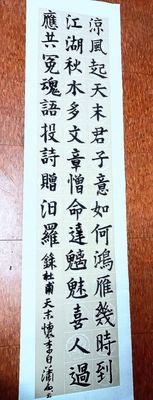 涼風起天末君子意如何鴻雁幾時到
江湖秋水多文章憎命達魑魅喜人過
應共冤魂語投詩贈汨羅 錄杜甫天末懷李白